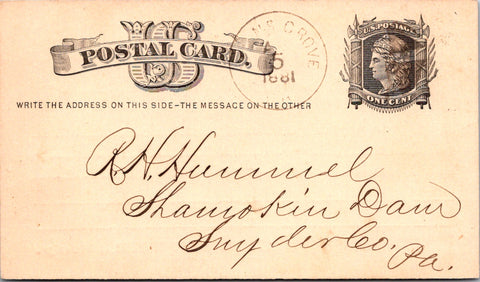 US
POSTAL CARD.
GROVE
5
1881
U.S. POSTAGE
ONE CENT
WRITE THE ADDRESS ON THIS SIDE-THE MESSAGE ON THE OTHER
R. H. Hummel
Shamokin Dam
Snyder Co.
Pa.